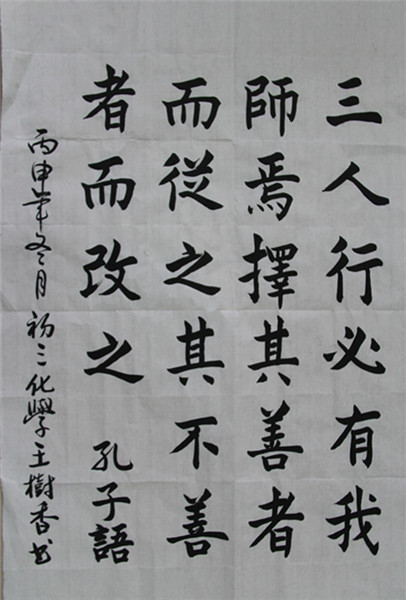 三人行必有我
師焉擇其善者
而從之其不善
者而改之 孔子語
丙申年冬月初三化學王樹香书